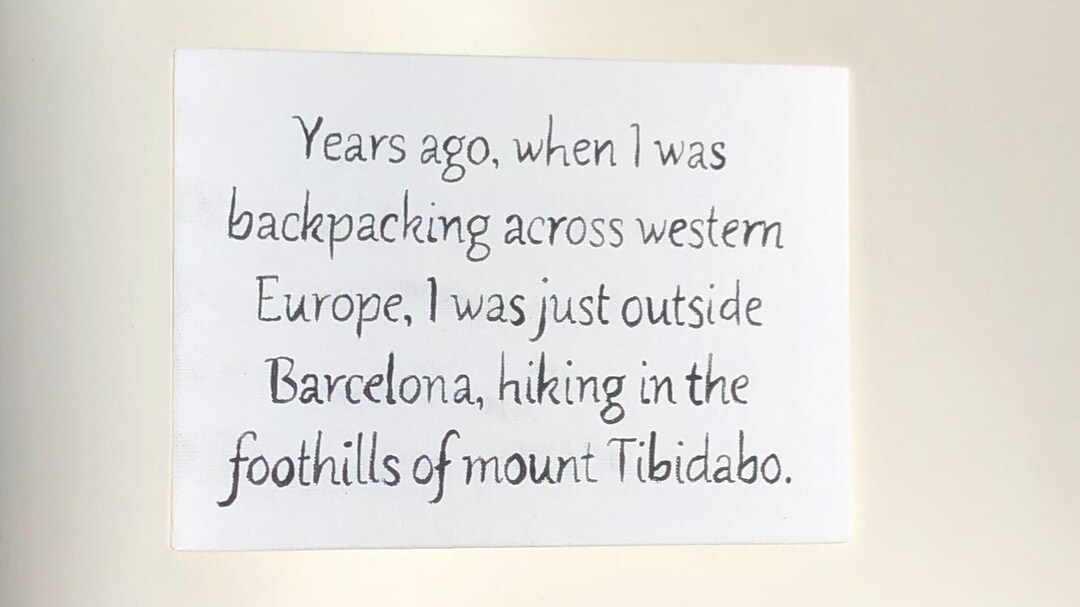 Years ago, when I was
backpacking across western
Europe, I was just outside
Barcelona, hiking in the
foothills of mount Tibidabo.